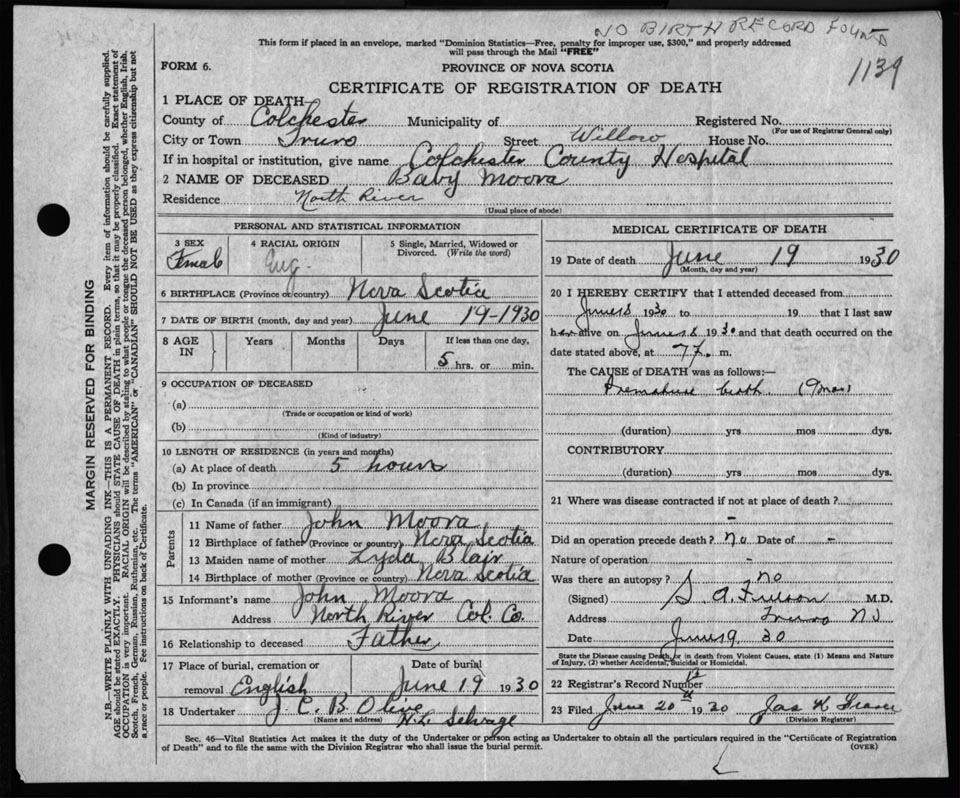 NO BIRTH RECORD FOUND
This form if placed in an envelope, marked "Dominion Statistics—Free, penalty for improper use, $300," and properly addressed
will pass through the Mail "FREE"
1139
FORM 6.
PROVINCE OF NOVA SCOTIA
CERTIFICATE OF REGISTRATION OF DEATH
1 PLACE OF DEATH—
County of Colchester Municipality of Registered No.
(For use of Registrar General only)
City or Town Truro Street Willow House No.
If in hospital or institution, give name Colchester County Hospital
2 NAME OF DECEASED Baby Moora
Residence North River
(Usual place of abode)
PERSONAL AND STATISTICAL INFORMATION
3 SEX Female
4 RACIAL ORIGIN Eng.
5 Single, Married, Widowed or Divorced. (Write the word)
6 BIRTHPLACE (Province or country) Nova Scotia
7 DATE OF BIRTH (month, day and year) June 19-1930
8 AGE IN Years Months Days If less than one day,
5 hrs. or min.
9 OCCUPATION OF DECEASED
(a)
(Trade or occupation or kind of work)
(b)
(Kind of industry)
10 LENGTH OF RESIDENCE (in years and months)
(a) At place of death 5 hours
(b) In province
(c) In Canada (if an immigrant)
Parents
11 Name of father John Moora
12 Birthplace of father (Province or country) Nova Scotia
13 Maiden name of mother Lyda Blair
14 Birthplace of mother (Province or country) Nova Scotia
15 Informant's name John Moora
Address North River Col. Co.
16 Relationship to deceased Father
17 Place of burial, cremation or Date of burial
removal English June 19 1930
18 Undertaker J. C. B. Olive
(Name and address) Selvage
MEDICAL CERTIFICATE OF DEATH
19 Date of death June 19 1930
(Month, day and year)
20 I HEREBY CERTIFY that I attended deceased from
June 18 1930 to 19 that I last saw
her alive on June 18 1930 and that death occurred on
date stated above, at 7 m.
The CAUSE of DEATH was as follows:—
Premature birth
(duration) yrs mos dys.
CONTRIBUTORY
(duration) yrs mos dys.
21 Where was disease contracted if not at place of death?
-
Did an operation precede death? no Date of -
Nature of operation -
Was there an autopsy? no
(Signed) S. A. M.D.
Address Truro NS
Date June 19 30
State the Disease causing Death, or in death from Violent Causes, state (1) Means and Nature
of Injury, (2) whether Accidental, Suicidal or Homicidal.
22 Registrar's Record Number
23 Filed June 20th 1930 Jas K Fraser
(Division Registrar)
Sec. 46—Vital Statistics Act makes it the duty of the Undertaker or person acting as Undertaker to obtain all the particulars required in the "Certificate of Registration
of Death" and to file the same with the Division Registrar who shall issue the burial permit.
(OVER)
MARGIN RESERVED FOR BINDING
N.B.—WRITE PLAINLY WITH UNFADING INK—THIS IS A PERMANENT RECORD. Every item of information should be carefully supplied.
AGE should be stated EXACTLY. PHYSICIANS should STATE CAUSE OF DEATH in plain terms, so that it may be properly classified. Exact statement of
OCCUPATION is very important. RACIAL ORIGIN will be described by stating to what people or tongue the deceased person belonged, whether English, Irish,
Scotch, French, German, Russian, Ruthenian, etc. The terms "AMERICAN" or "CANADIAN" SHOULD NOT BE USED as they express citizenship but not
a race or people. See instructions on back of Certificate.